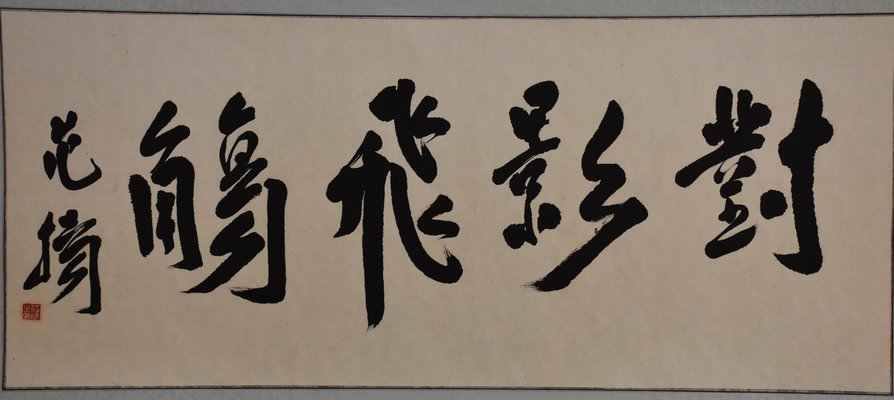 對影飛觴
范